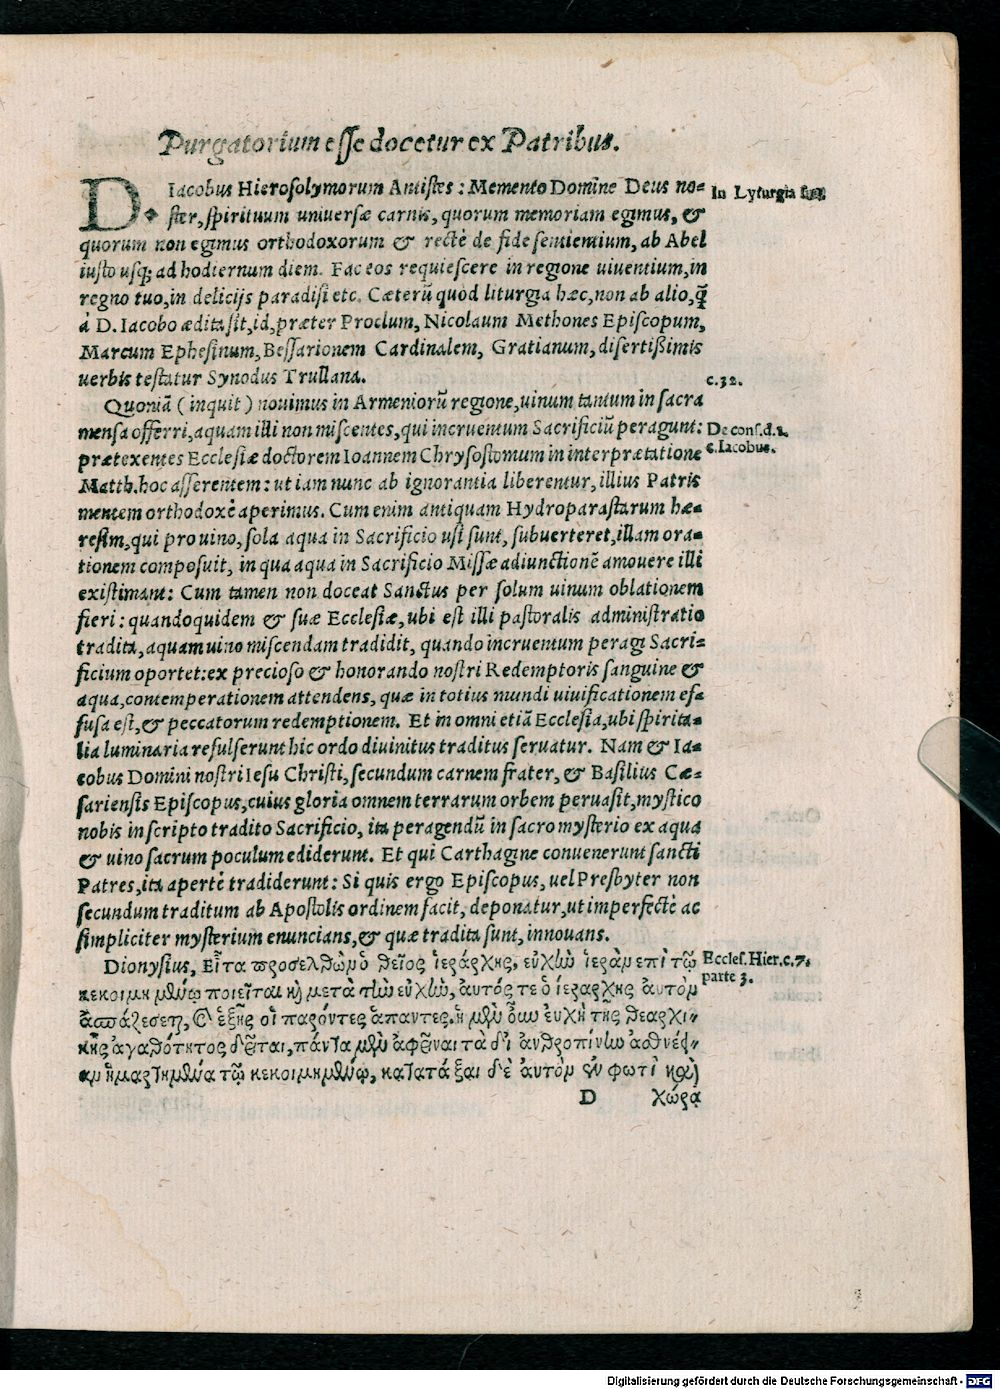 Purgatorium esse docetur ex Patribus.
D. Iacobus Hierosolymorum Antistes: Memento Domine Deus no=
ster, spirituum uniuersæ carnis, quorum memoriam egimus, &
quorum non egimus orthodoxorum & rectè de fide sentientium, ab Abel
iusto usq; ad hodiernum diem. Fac eos requiescere in regione uiuentium, in
regno tuo, in delicijs paradisi etc. Cæterũ quòd liturgia hæc, non ab alio, q̃
à D. Iacobo ædita sit, id, præter Proclum, Nicolaum Methones Episcopum,
Marcum Ephesinum, Bessarionem Cardinalem, Gratianum, disertißimis
uerbis testatur Synodus Trullana.
Quoniã (inquit) nouimus in Armeniorũ regione, uinum tantum in sacra
mensa offerri, aquam illi non miscentes, qui incruentum Sacrificiũ peragunt:
prætexentes Ecclesiæ doctorem Ioannem Chrysostomum in interprætatione
Matth. hoc asserentem: ut iam nunc ab ignorantia liberentur, illius Patris
mentem orthodoxè aperimus. Cum enim antiquam Hydroparastarum hæ=
resim, qui pro uino, sola aqua in Sacrificio usi sunt, subuerteret, illam ora=
tionem composuit, in qua aqua in Sacrificio Missæ adiunctionẽ amouere illi
existimant: Cum tamen non doceat Sanctus per solum uinum oblationem
fieri: quandoquidem & suæ Ecclesiæ, ubi est illi pastoralis administratio
tradita, aquam uino miscendam tradidit, quando incruentum peragi Sacri=
ficium oportet: ex precioso & honorando nostri Redemptoris sanguine &
aqua, contemperationem attendens, quæ in totius mundi uiuificationem ef=
fusa est, & peccatorum redemptionem. Et in omni etiã Ecclesia, ubi spirita=
lia luminaria refulserunt hic ordo diuinitus traditus seruatur. Nam & Ia=
cobus Domini nostri Iesu Christi, secundum carnem frater, & Basilius Cæ=
sariensis Episcopus, cuius gloria omnem terrarum orbem peruasit, mystico
nobis in scripto tradito Sacrificio, ita peragendũ in sacro mysterio ex aqua
& uino sacrum poculum ediderunt. Et qui Carthagine conuenerunt sancti
Patres, ita apertè tradiderunt: Si quis ergo Episcopus, uel Presbyter non
secundum traditum ab Apostolis ordinem facit, deponatur, ut imperfectè ac
simpliciter mysterium enuncians, & quæ tradita sunt, innouans.
Dionysius, Εἶτα προσελθὼν ὁ θεῖος ἱεράρχης, εὐχὼ ἱερὰν επὶ τῷ
κεκοιμημθύῳ ποιεῖται κὴ μετὰ τὼ εὐχὼ, ἀυτός τε ὁ ἱεράρχης ἀυτὸν
ἀσπάζεσετ, Cὶ ἑξῆς οἱ παρόντες ἅπαντες. ἡ μὲν ὅω ἐυχὴ τῆς θεαρχι=
κῆς ἀγαθότητος δεῖται, πάντα μὲν ἀφεῖναι τὰ δι ἀνθροπίνω ἀσθνέφ=
αν ἡμαρτημθύα τῷ κεκοιμημθύῳ, κατατάξαι δὲ ἀυτὸν ἐν φωτὶ καὶ
D χώρᾳ
In Lyturgia sua.
c.32.
De cons.d.1.
c.Iacobus.
Eccles. Hier.c.7.
parte 3.
Digitalisierung gefördert durch die Deutsche Forschungsgemeinschaft - DFG